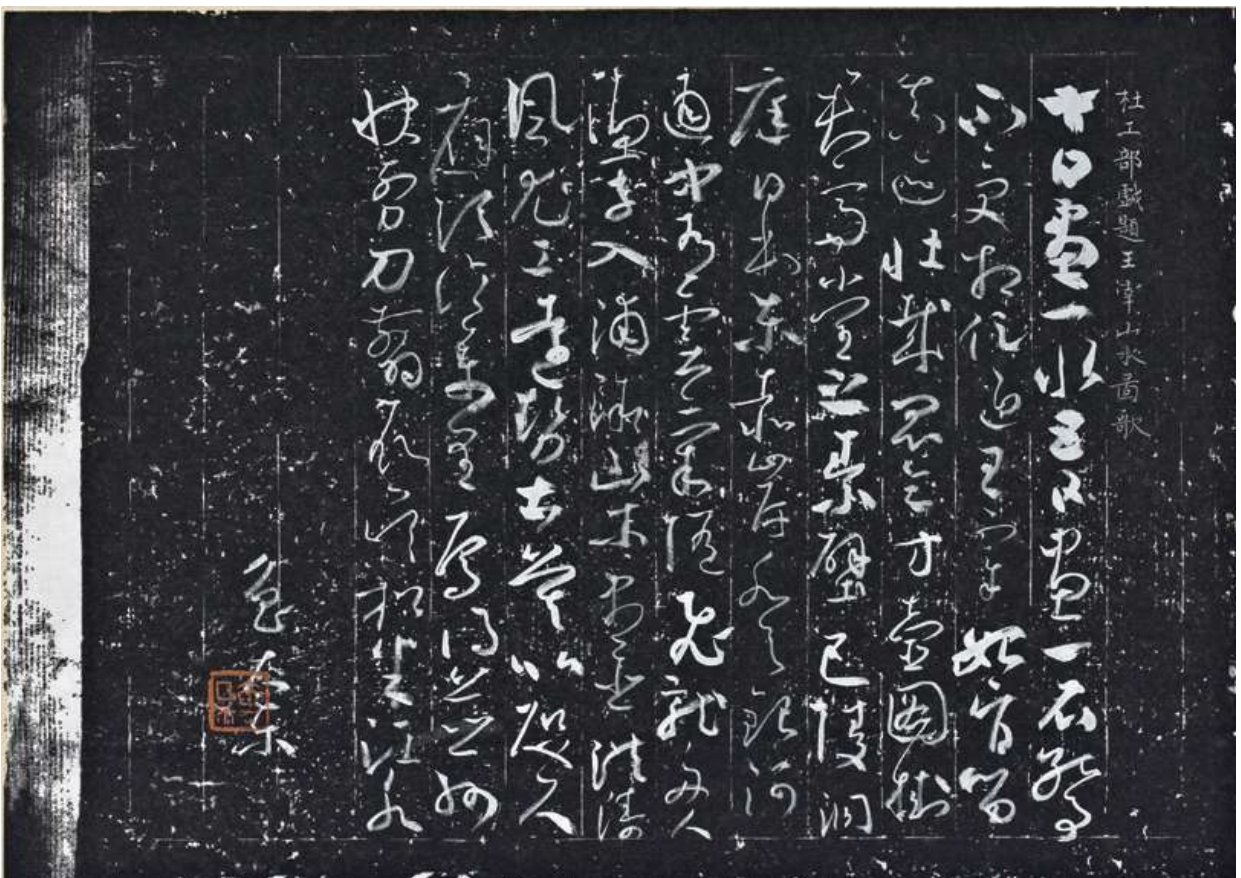 杜工部戲題王宰山水啚歌
十日畫一水五日畫一石能事
不受相促迫王宰始肯留
真迹壯哉昆侖方壺圖掛
君高堂之素壁巴陵洞
庭日本東赤岸水與銀河
通中有雲氣隨飛龍舟人
漁子入浦漵山木盡亞洪濤
風尤工遠勢古莫比咫尺
應須論萬里焉得并州
快剪刀翦取吳松半江水